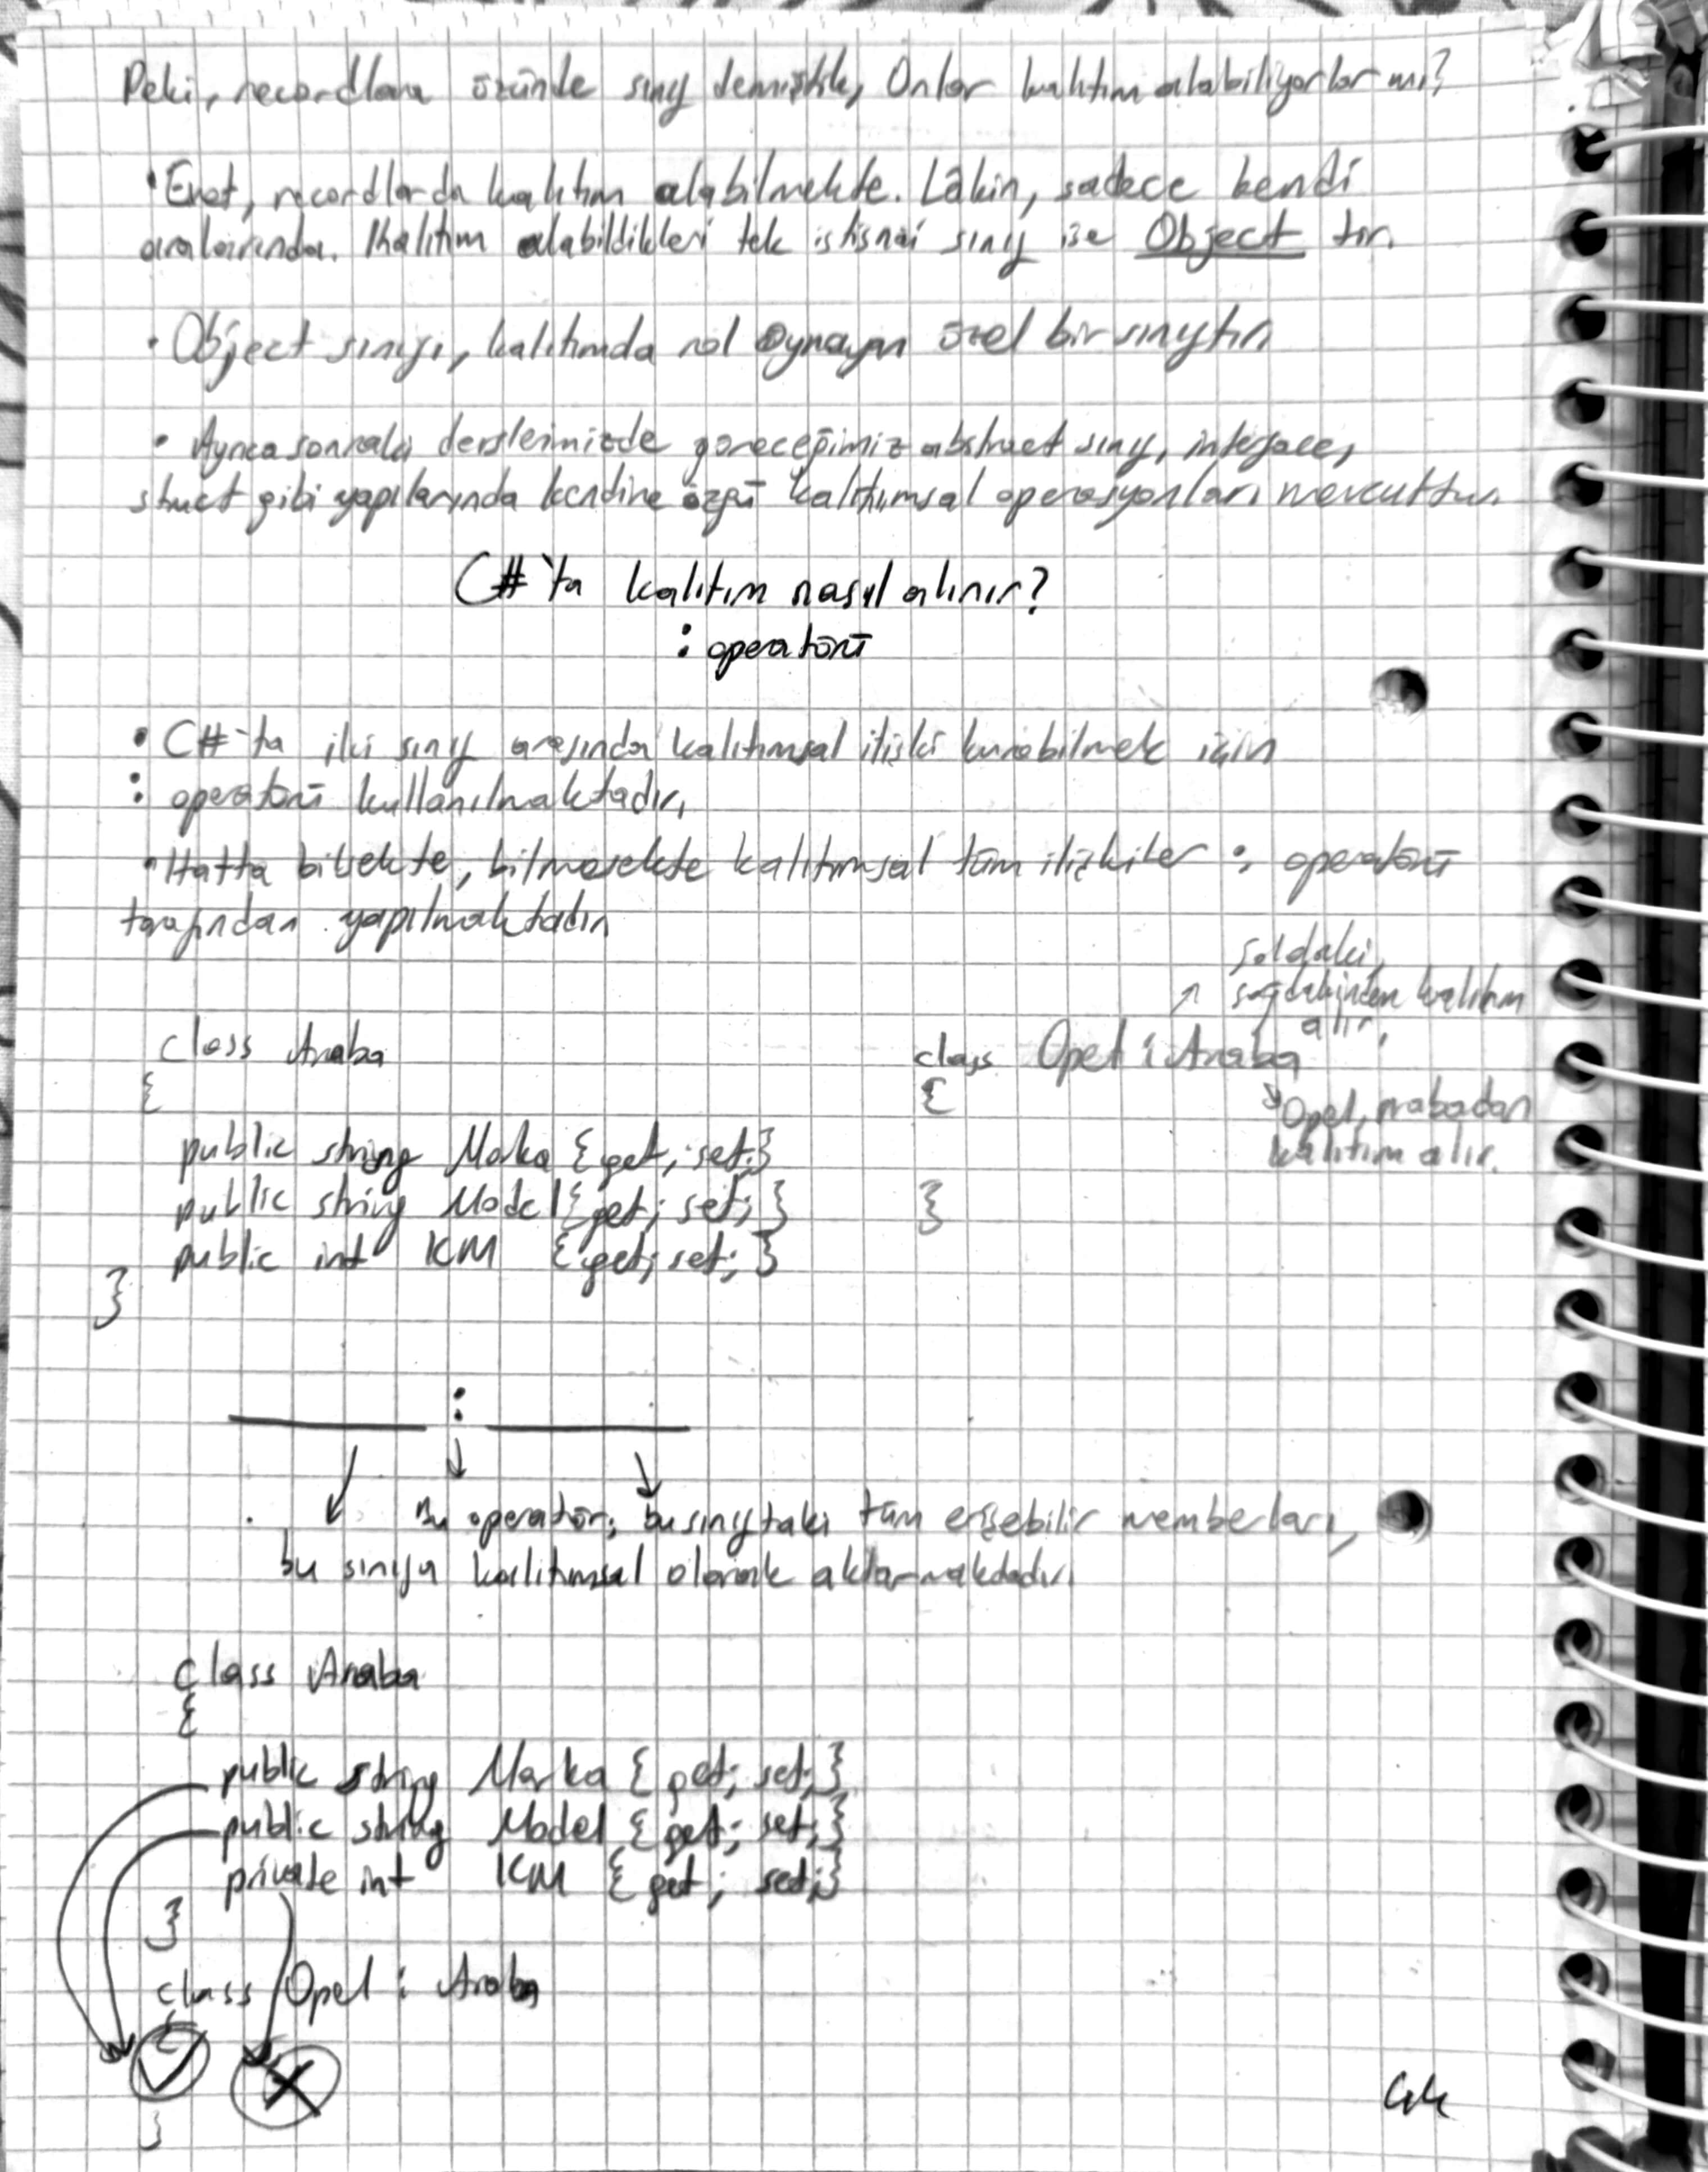 Peki, recordlara özünde sınıf demiştik, Onlar kalıtım alabiliyorlar mı?
• Evet, recordlarda kalıtım alabilmekte. Lâkin, sadece kendi
aralarında. Kalıtım alabildikleri tek istisnai sınıf ise Object tir.
• Object sınıfı, kalıtımda rol oynayan özel bir sınıftır.
• Ayrıca sonraki derslerimizde göreceğimiz abstract sınıf, interface,
struct gibi yapılarında kendine özgü kalıtımsal operasyonları mevcuttur.
C#'ta kalıtım nasıl alınır?
: operatörü
• C#'ta iki sınıf arasında kalıtımsal ilişki kurabilmek için
: operatörü kullanılmaktadır.
• Hatta bilsekte, bilmesekte kalıtımsal tüm ilişkiler : operatörü
tarafından yapılmaktadır.
soldaki,
↗ sağdakinden kalıtım
alır.
class Araba
{
public string Marka {get; set;}
public string Model {get; set;}
public int KM {get; set;}
}
class Opel : Araba
{
↘ Opel, arabadan
kalıtım alır.
}
:
Bu operatör; bu sınıftaki tüm erişebilir memberları,
bu sınıfa kalıtımsal olarak aktarmaktadır.
class Araba
{
public string Marka { get; set;}
public string Model { get; set;}
private int KM { get; set;}
}
class Opel : Araba
{
✓ X
}